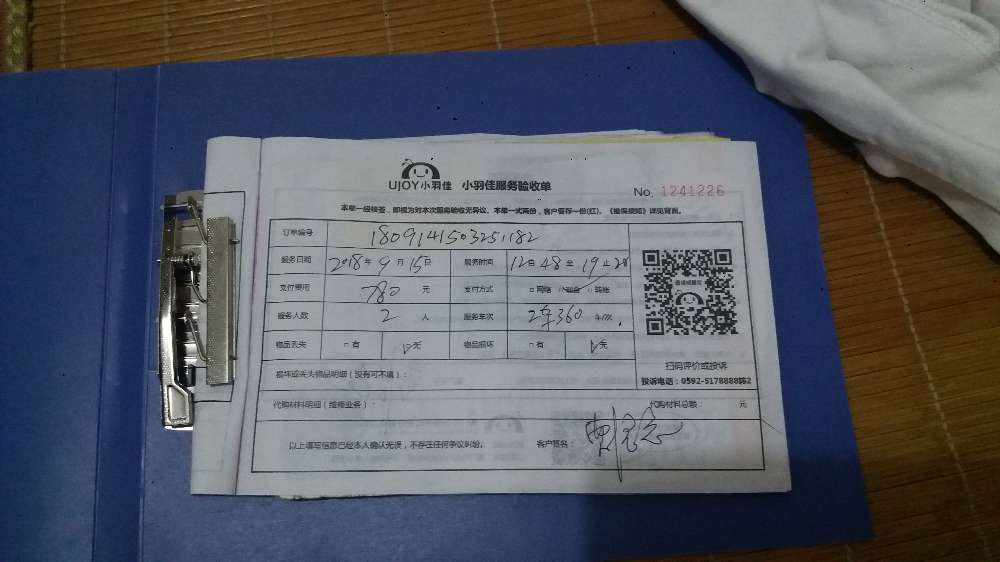 UJOY小羽佳 小羽佳服务验收单
No. 1241226
本单一经签名，即视为对本次服务验收无异议。本单一式两份，客户留存一份(红)。《维保须知》详见背面。
订单编号 1809141503251182
服务日期 2018年9月15日 服务时间 12时48至19
支付费用 780 元 支付方式 □网络 现金 □转账
服务人数 2 人 服务车次 2车360 车/次
物品丢失 □有 无 物品损坏 □有 无
损坏或丢失物品明细（没有可不填）：
代购材料明细（维修业务）： 代购材料总额： 元
以上填写信息已经本人确认无误，不存在任何争议纠纷。 客户签名：
扫码评价或投诉
投诉电话：0592-5178888